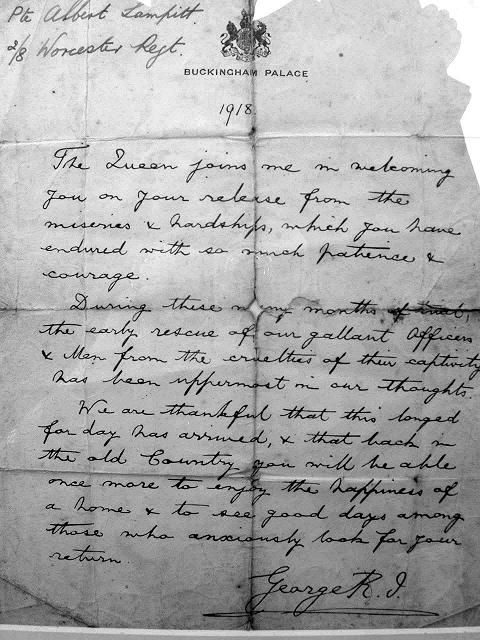 Pte Albert Lampitt
2/8 Worcester Regt.
BUCKINGHAM PALACE
1918
The Queen joins me in welcoming
you on your release from the
miseries & hardships, which you have
endured with so much patience &
courage.
During these many months of trial,
the early rescue of our gallant Officers
& Men from the cruelties of their captivity
has been uppermost in our thoughts.
We are thankful that this longed
for day has arrived, & that back in
the old Country you will be able
once more to enjoy the happiness of
a home & to see good days among
those who anxiously look for your
return.
George R.I.